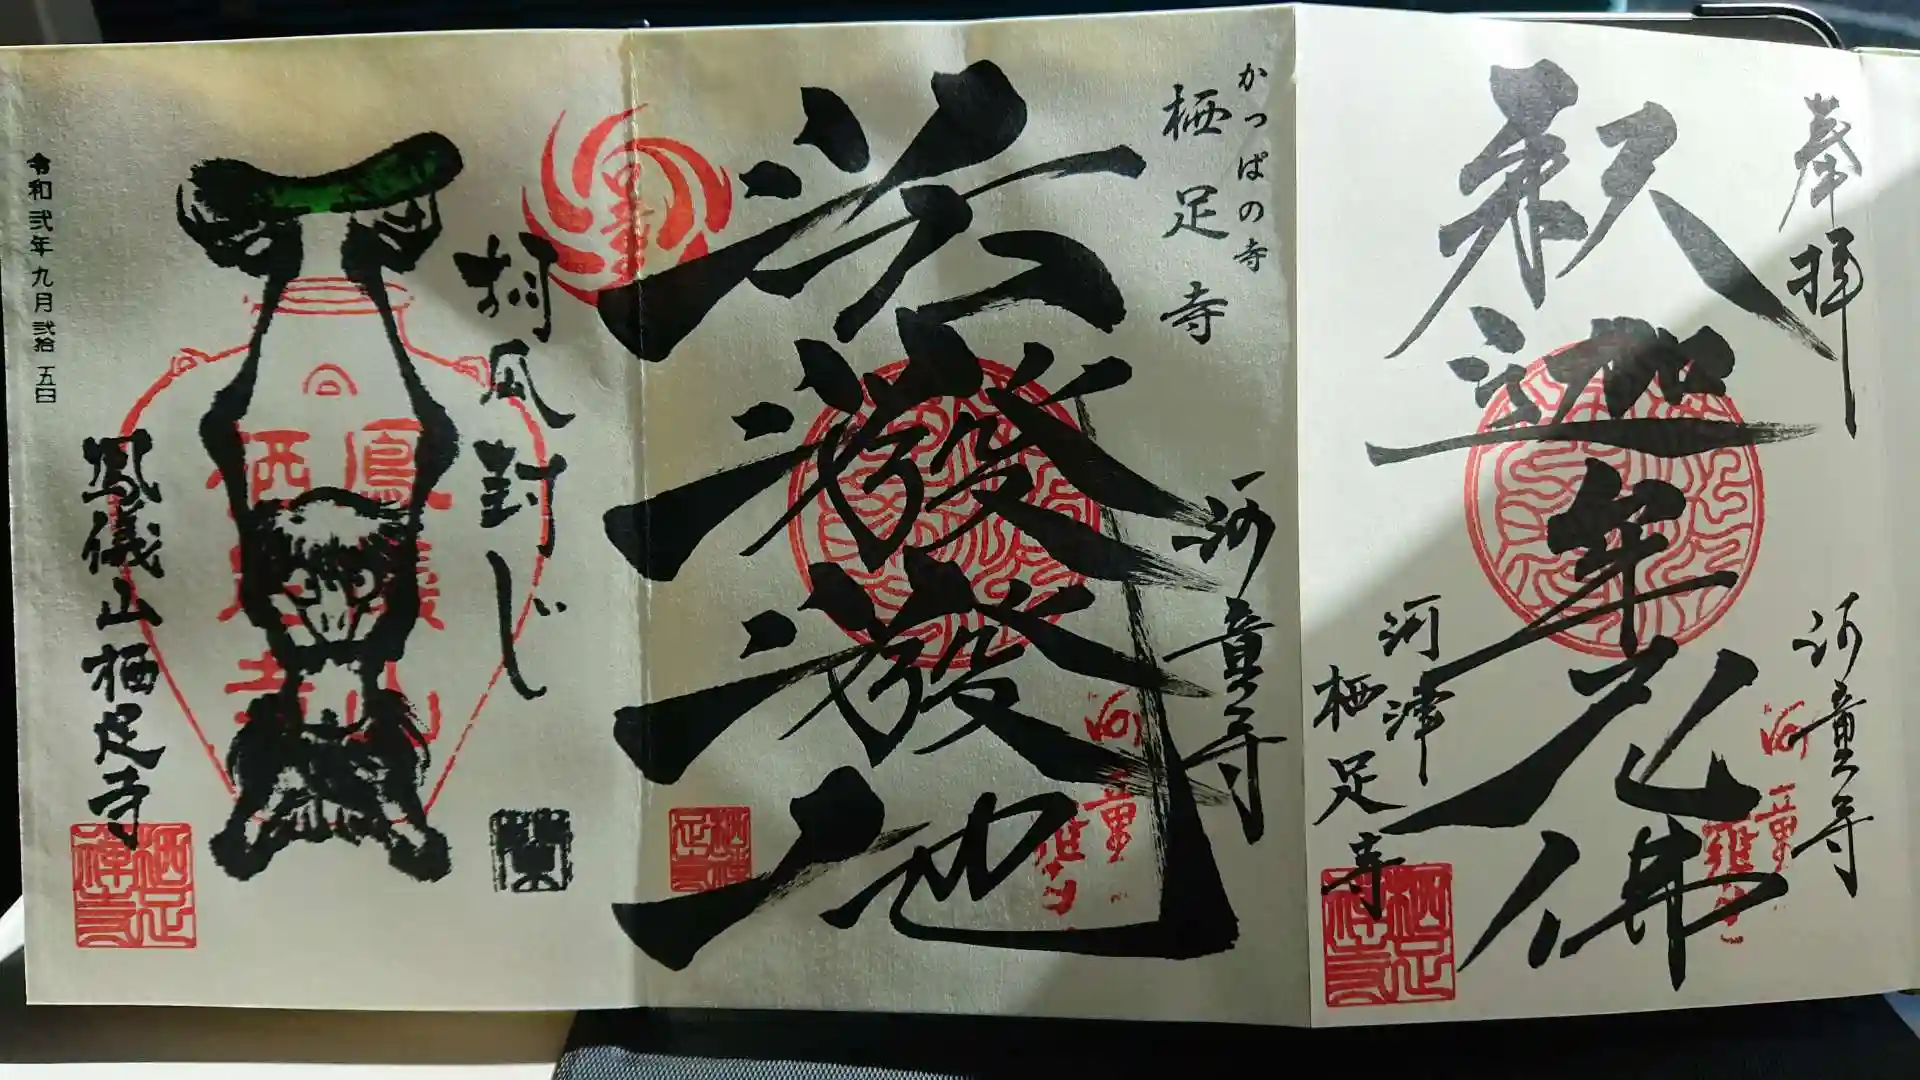 奉拝
釈迦牟尼佛
河童寺
河津
栖足寺
河童
かっぱの寺
栖足寺
活潑潑地
河童寺
河童
封じ
鳳儀山栖足寺
鳳儀山
栖足寺
令和弐年九月弐拾五日